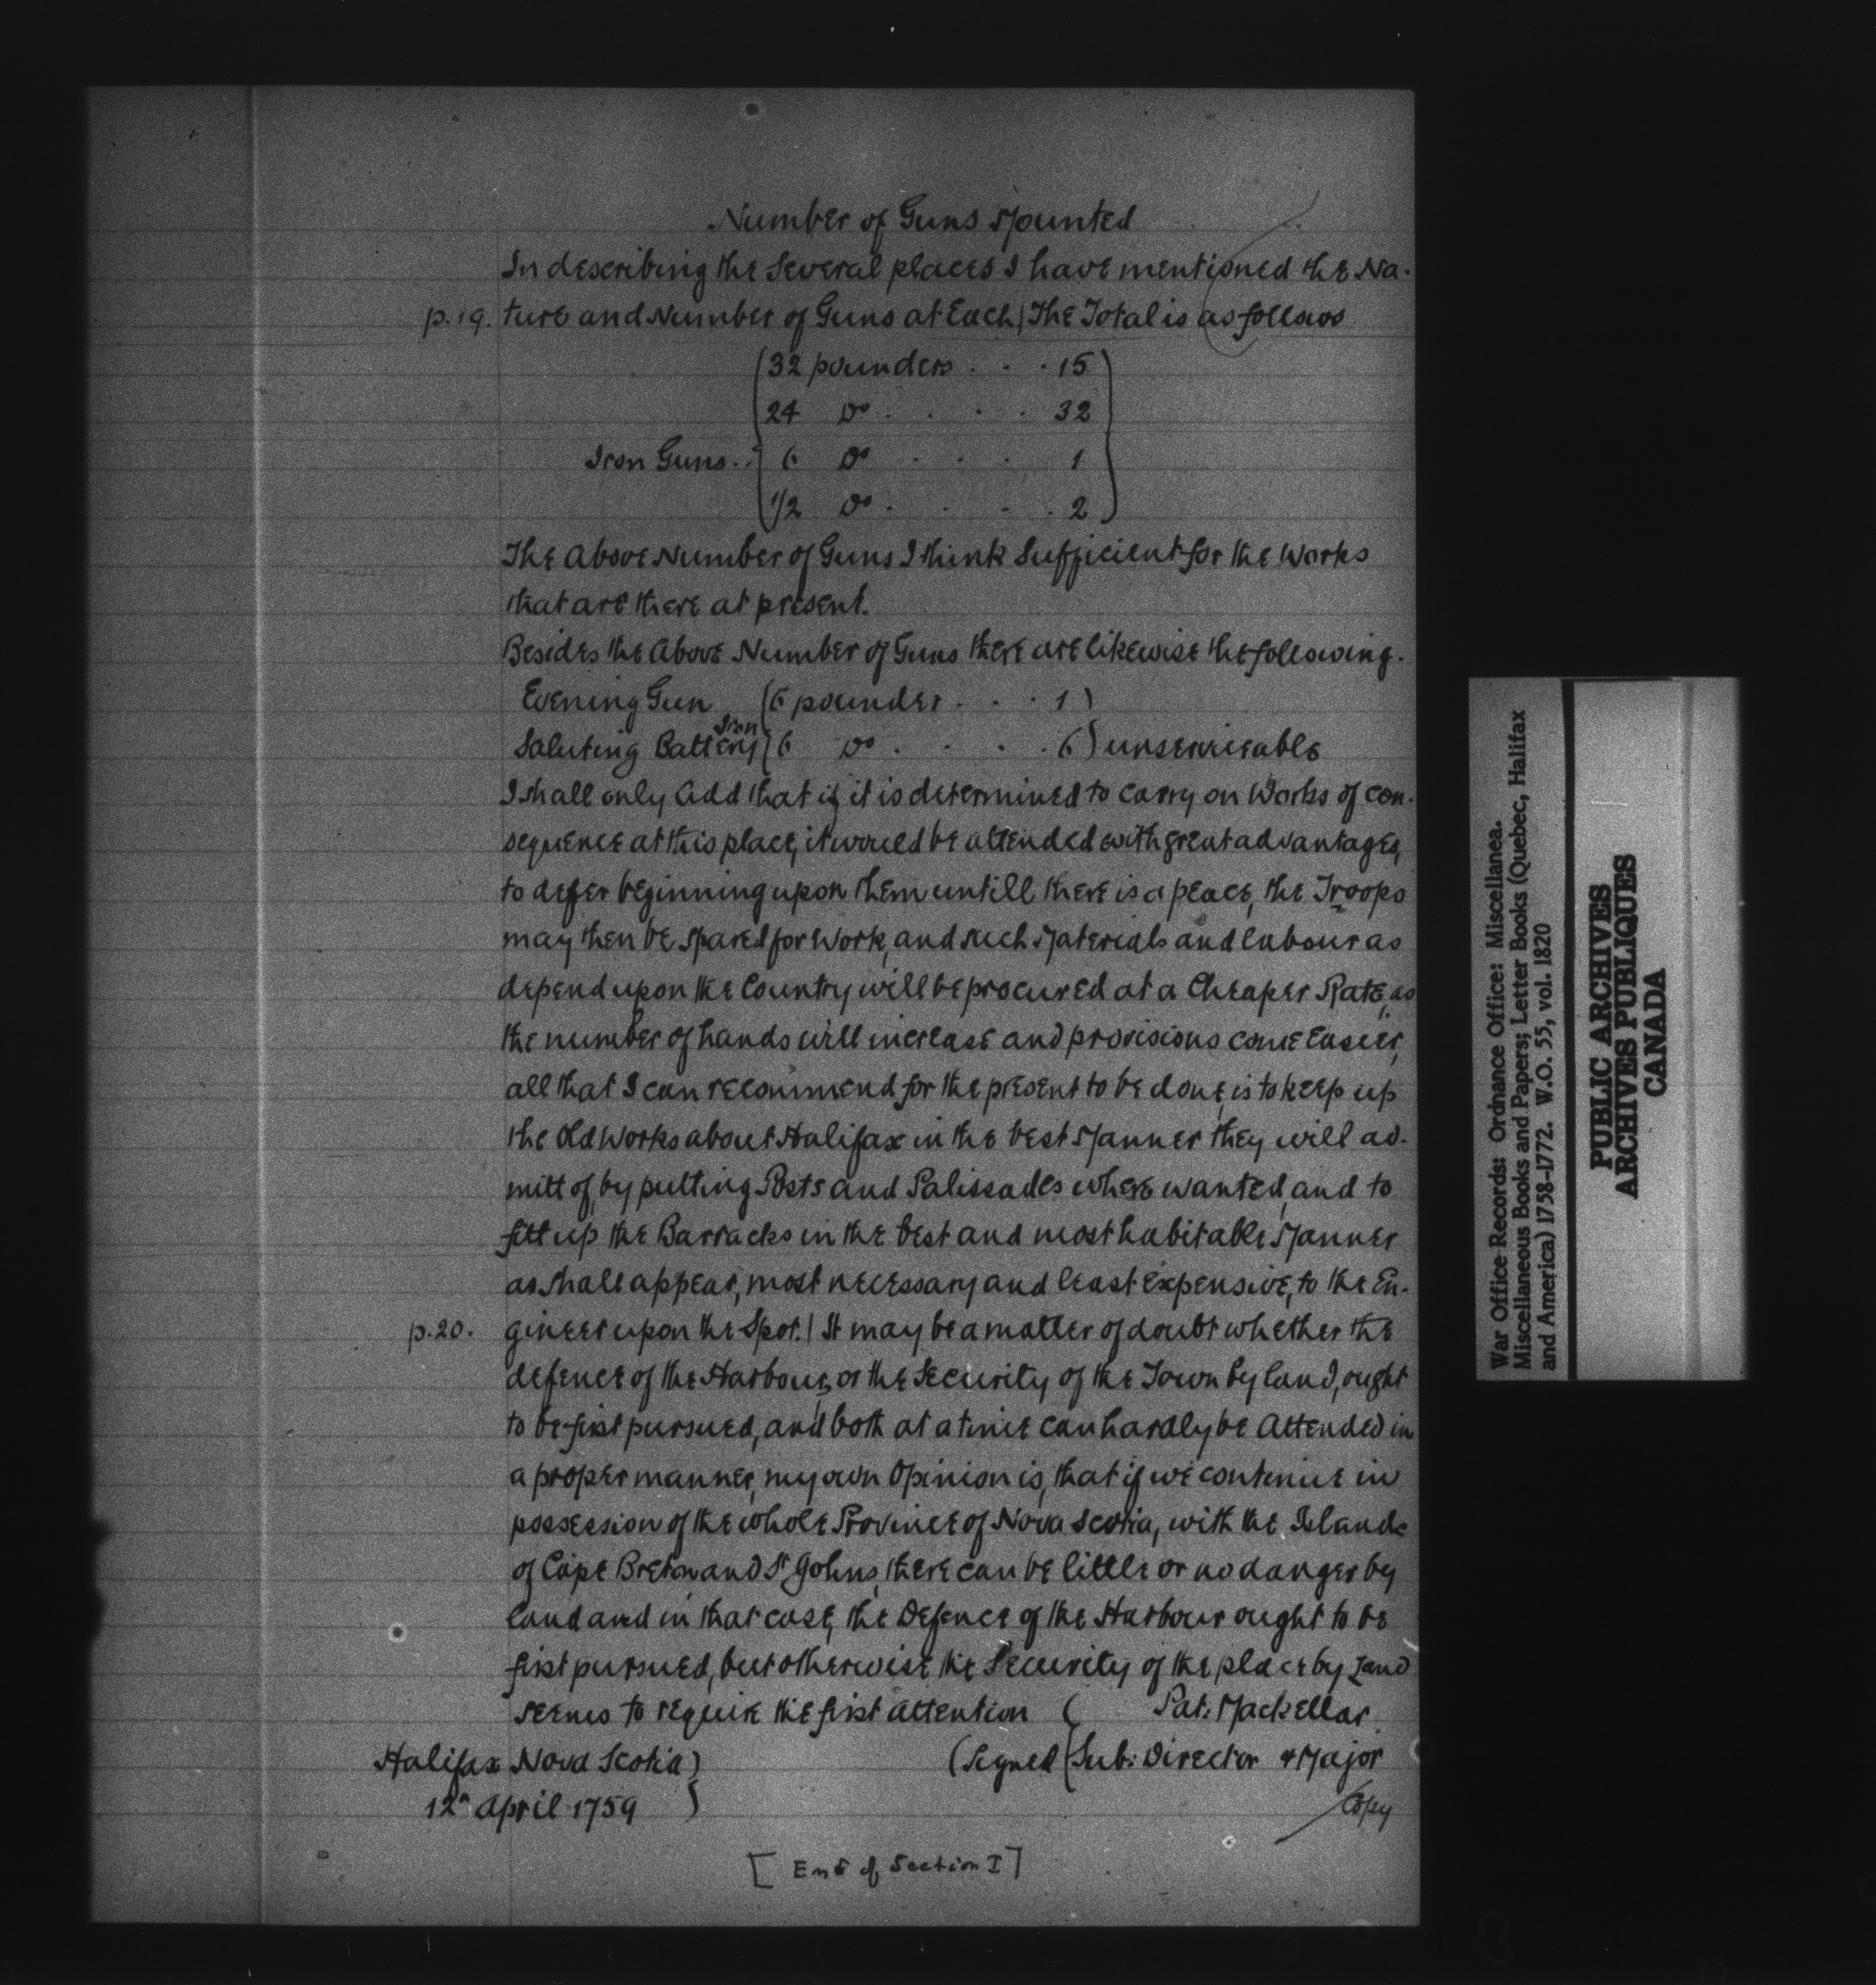 Number of Guns Mounted
In describing the Several places I have mentioned the Na-
p.19. ture and Number of Guns at Each | The Total is as follows
(32 pounders . . . 15)
24 Do . . . . 32
Iron Guns . . { 6 Do . . . 1
1/2 Do . . . . 2
The Above Number of Guns I think Sufficient for the Works
that are there at present.
Besides the Above Number of Guns there are likewise the following.
Evening Gun (6 pounder . . . 1)
Iron
Saluting Battery (6 Do . . . . 6) unserviceable
I shall only Add that if it is determined to carry on Works of con-
sequence at this place, it would be attended with great advantages,
to defer beginning upon them untill there is a peace, the Troops
may then be Spared for Work, and such Materials and labour as
depend upon the Country will be procured at a Cheaper Rate, as
the number of hands will increase and provisions come Easier,
all that I can recommend for the present to be done, is to keep up
the Old Works about Halifax in the best Manner they will ad-
mitt of, by putting Posts and Palissades where wanted, and to
fitt up the Barracks in the best and most habitable Manner
as shall appear, most necessary and least Expensive, to the En-
p.20. gineer upon the Spot. | It may be a matter of doubt whether the
defence of the Harbour, or the Security of the Town by land, ought
to be first pursued, and both at a time can hardly be Attended in
a proper manner, my own Opinion is, that if we continue in
possession of the whole Province of Nova Scotia, with the Islands
of Cape Breton and St Johns, there can be little or no danger by
land and in that case, the Defence of the Harbour ought to be
first pursued, but otherwise the Security of the place by Land
seems to require the first Attention ( Pat: Mackellar
Halifax Nova Scotia) (Signed (Sub: Director & Major
12th April 1759 )
Copy
[ End of Section I ]
War Office Records: Ordnance Office: Miscellanea.
Miscellaneous Books and Papers; Letter Books (Quebec, Halifax
and America) 1758-1772. W.O. 55, vol. 1820
PUBLIC ARCHIVES
ARCHIVES PUBLIQUES
CANADA